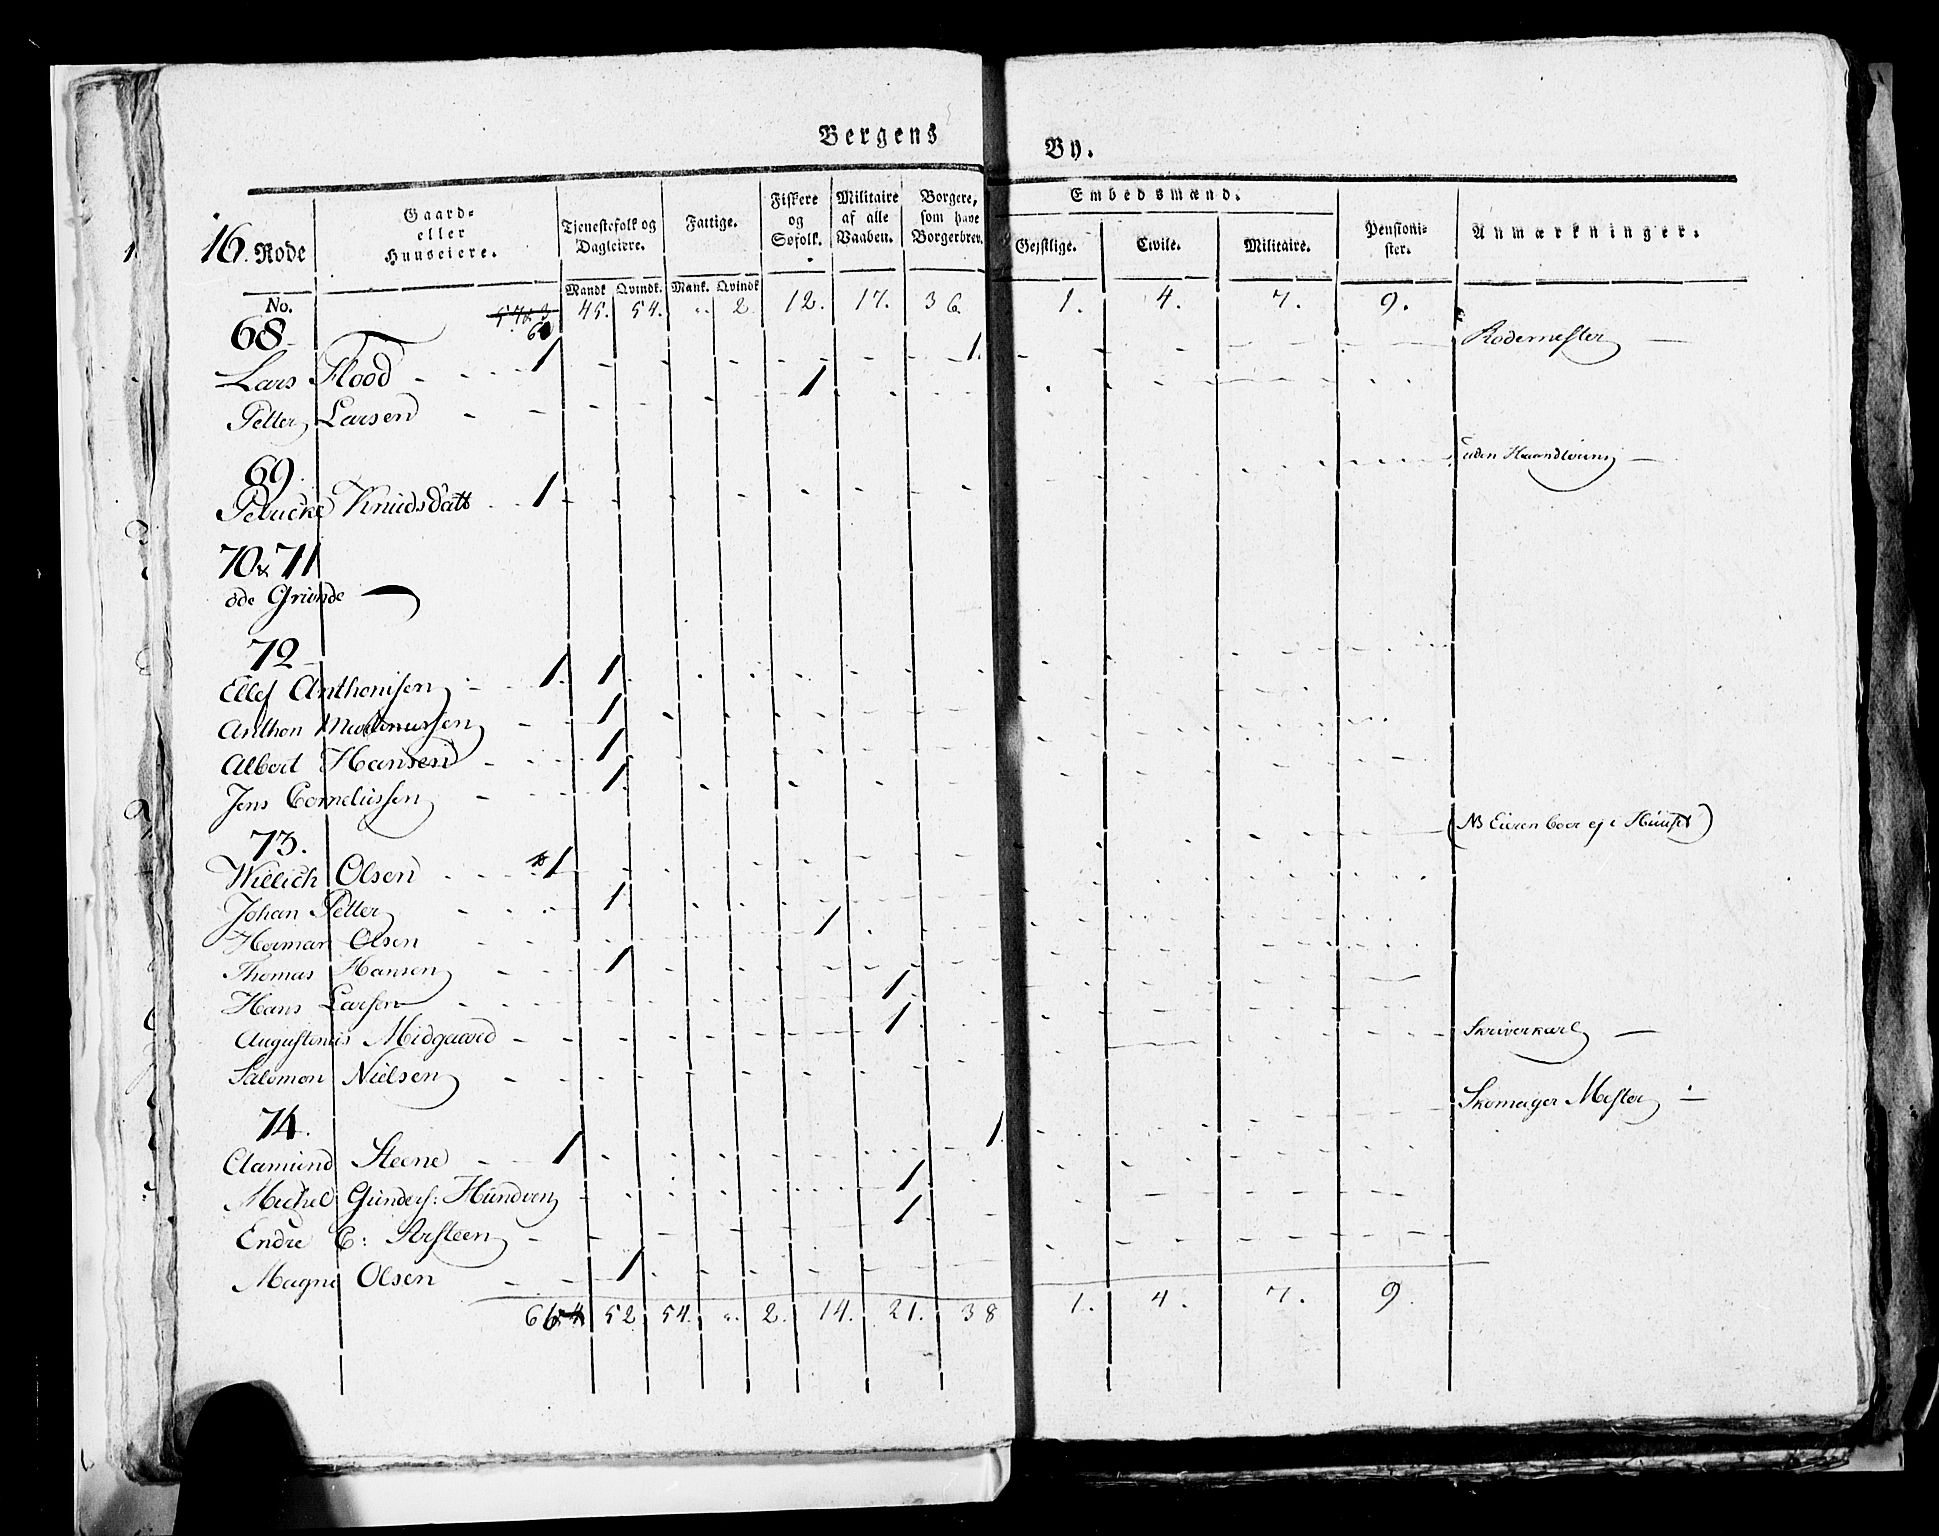 Bergens By.
16. Rode
No.
Gaard=
eller
Huuseiere.
Tjenestefolk og
Dagleiere.
Mandk. Qvindk.
Fattige.
Mank. Qvindk.
Fiskere
og
Søfolk.
Militaire
af alle
Vaaben.
Borgere,
som have
Borgerbrev.
Embedsmænd.
Gejstlige. Civile. Militaire.
Pensioni-
ster.
Anmærkninger.
45. 54. „. 2. 12. 17. 36. 1. 4. 7. 9.
68
Lars Flood 1 1. Rodemester
Petter Larsen 1
69.
Knudsdatt 1
70 & 71
øde Grunde
72
Ellef Anthonisen 1. 1
Anthon 1
Albert Hansen 1
Jens Corneliussen 1
73.
Willich Olsen 1 (NB Eieren boer ej i Huuset)
Johan Petter 1
Herman Olsen 1
Thomas Hansen 1
Hans Larsen 1
Augustinus Midgaard 1
Salomon Nielsen Skriverkarl
74.
Clamund Steene 1 1 Skomager Mester
Michel Gunders: Hundven 1
Endre C: Arsteen 1
Magne Olsen 1
52 54. „. 2. 14. 21. 38 1. 4. 7. 9.